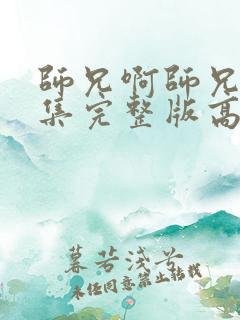 師兄啊師兄
集完整版高
暮若淺兮
未经同意禁止转载